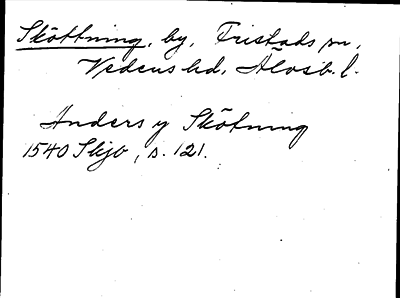 Sköttning, by, Fristads sn,
Vedens hd, Älvsb. l.
Anders y Skötning
1540 Skjb, s. 121.